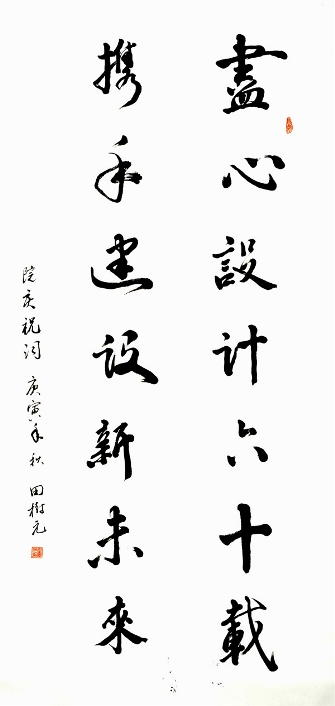 盡心設计六十載
携手建设新未來
院庆祝词 庚寅年秋 田樹元